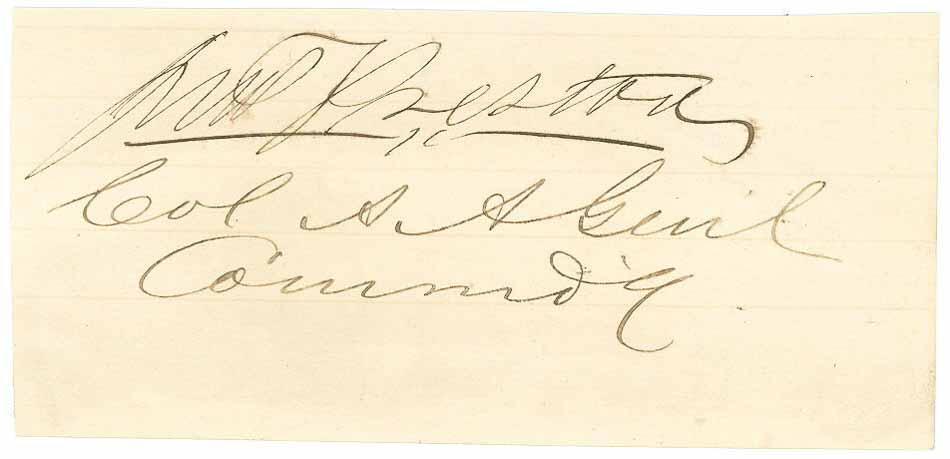 Jno S Preston
Col A. A Genl
Commd'g